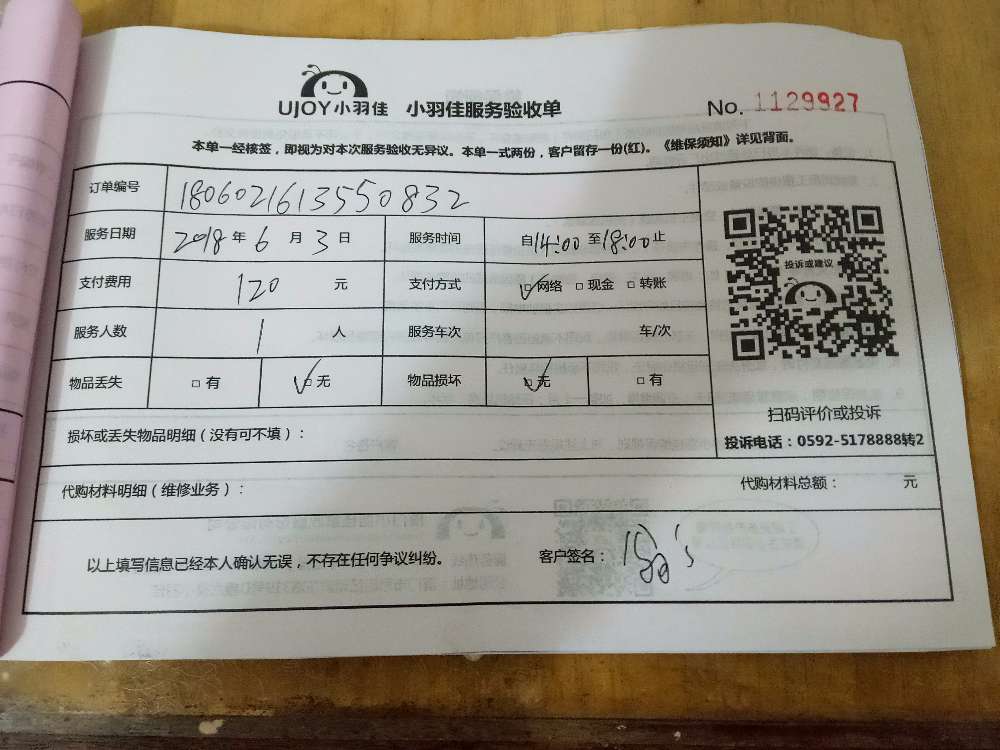 UJOY小羽佳 小羽佳服务验收单 No. 1129927
本单一经核签，即视为对本次服务验收无异议。本单一式两份，客户留存一份(红)。《维保须知》详见背面。
订单编号 1806021613550832
服务日期 2018 年 6 月 3 日 服务时间 自14:00 至18:00止
支付费用 120 元 支付方式 ☑网络 □现金 □转账
服务人数 1 人 服务车次 车/次
物品丢失 □有 ☑无 物品损坏 ☑无 □有
投诉或建议
扫码评价或投诉
投诉电话：0592-5178888转2
损坏或丢失物品明细（没有可不填）：
代购材料明细（维修业务）： 代购材料总额： 元
以上填写信息已经本人确认无误，不存在任何争议纠纷。 客户签名：